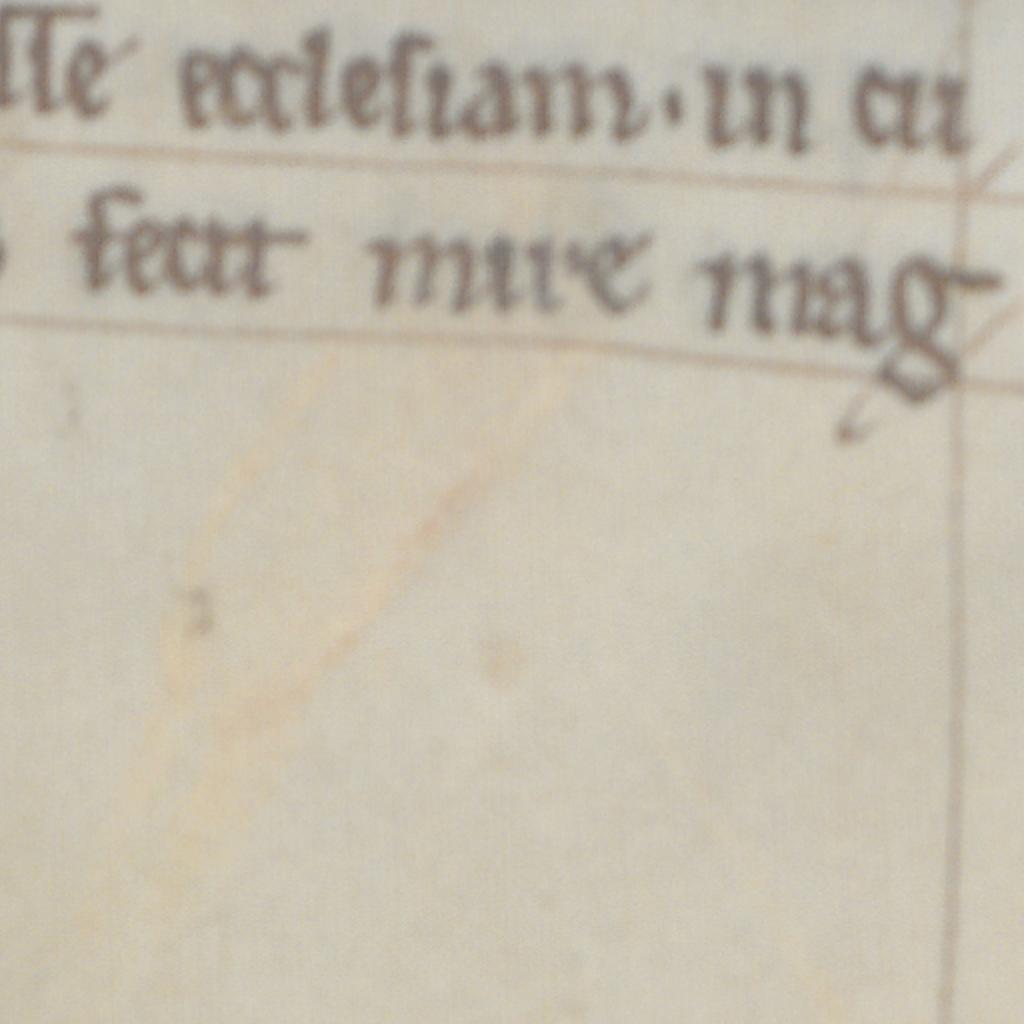 sse ecclesiam · in cu
fecit mire mag